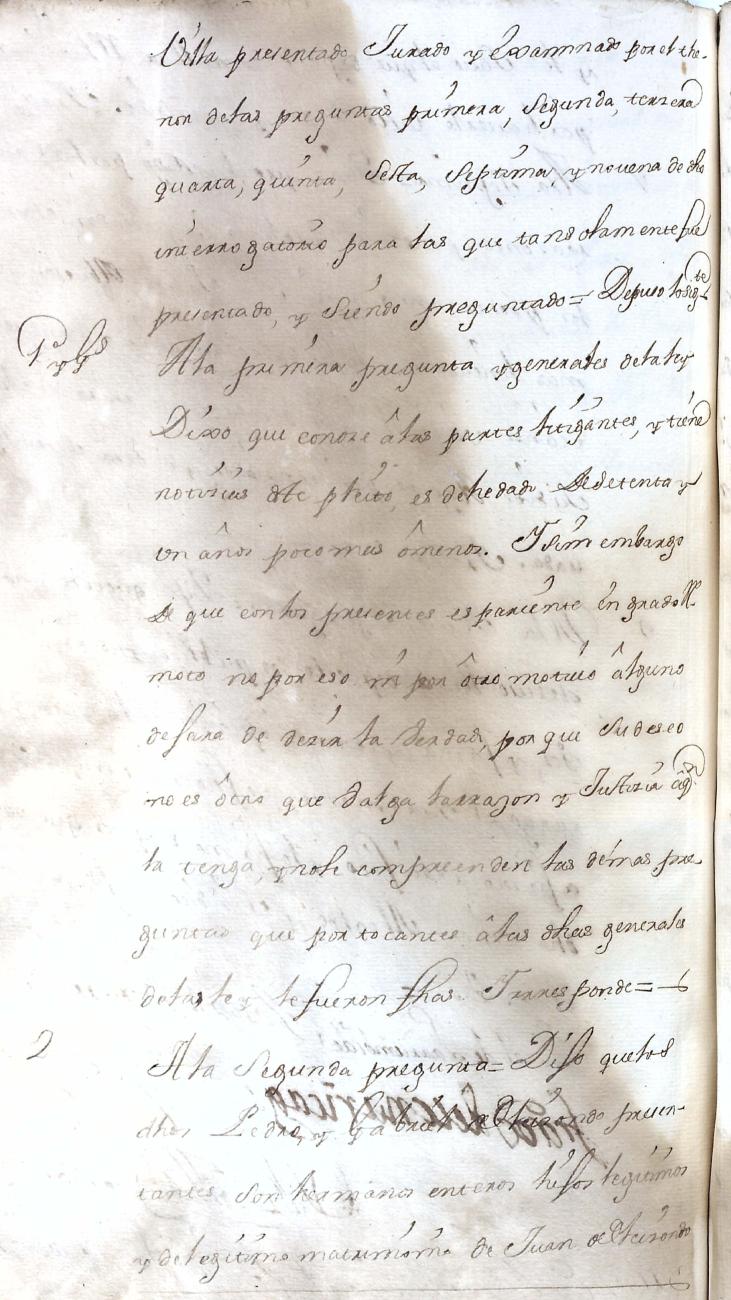 Villa presentado Jurado y Examinado por el the-
nor delas preguntas primera, Segunda, terzera
quarta, quinta, Sesta, Septima, y novena de dho
interrogatorio para las que tansolamente fue
presentado, y Siendo preguntado = Depuso lo sigte
1ª y gs
Ala primera pregunta y generales dela ley
Dixo que conoze âlas partes litigantes, y tiene
notizias deste pleito, es dehedad de setenta y
un años poco mas ômenos. Y sin embargo
de que conlos presentes es pariente en grado Re-
moto no por eso ni por ôtro motivo âlguno
dejara de dezir la Verdad, porque su deseo
no es ôtro que Valga la razon y Justizia âq.n
la tenga, y nole comprenden las demas pre-
guntas que por tocantes âlas dhas generales
dela ley le fueron fhas. Y responde =
2
Ala Segunda pregunta = Dijo quelos
dhos Pedro, y Gabriel de Elizondo presen-
tantes Son hermanos enteros hijos legitimos
y de legitimo matrimonio de Juan de Elizondo